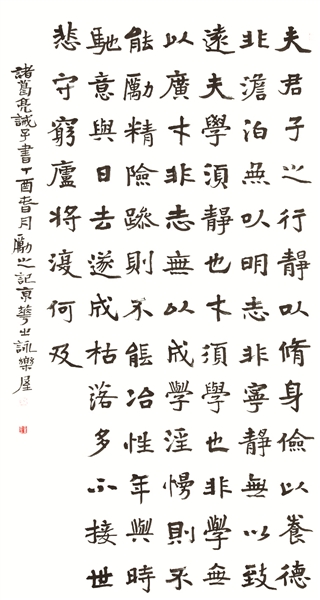 夫君子之行靜以脩身儉以養德
非澹泊無以明志非寧靜無以致
遠夫學須靜也才須學也非學無
以廣才非志無以成學淫慢則不
能勵精險躁則不能冶性年與時
馳意與日去遂成枯落多不接世
悲守窮廬將復何及
諸葛亮誡子書丁酉春月勵之記京華之詠樂屋